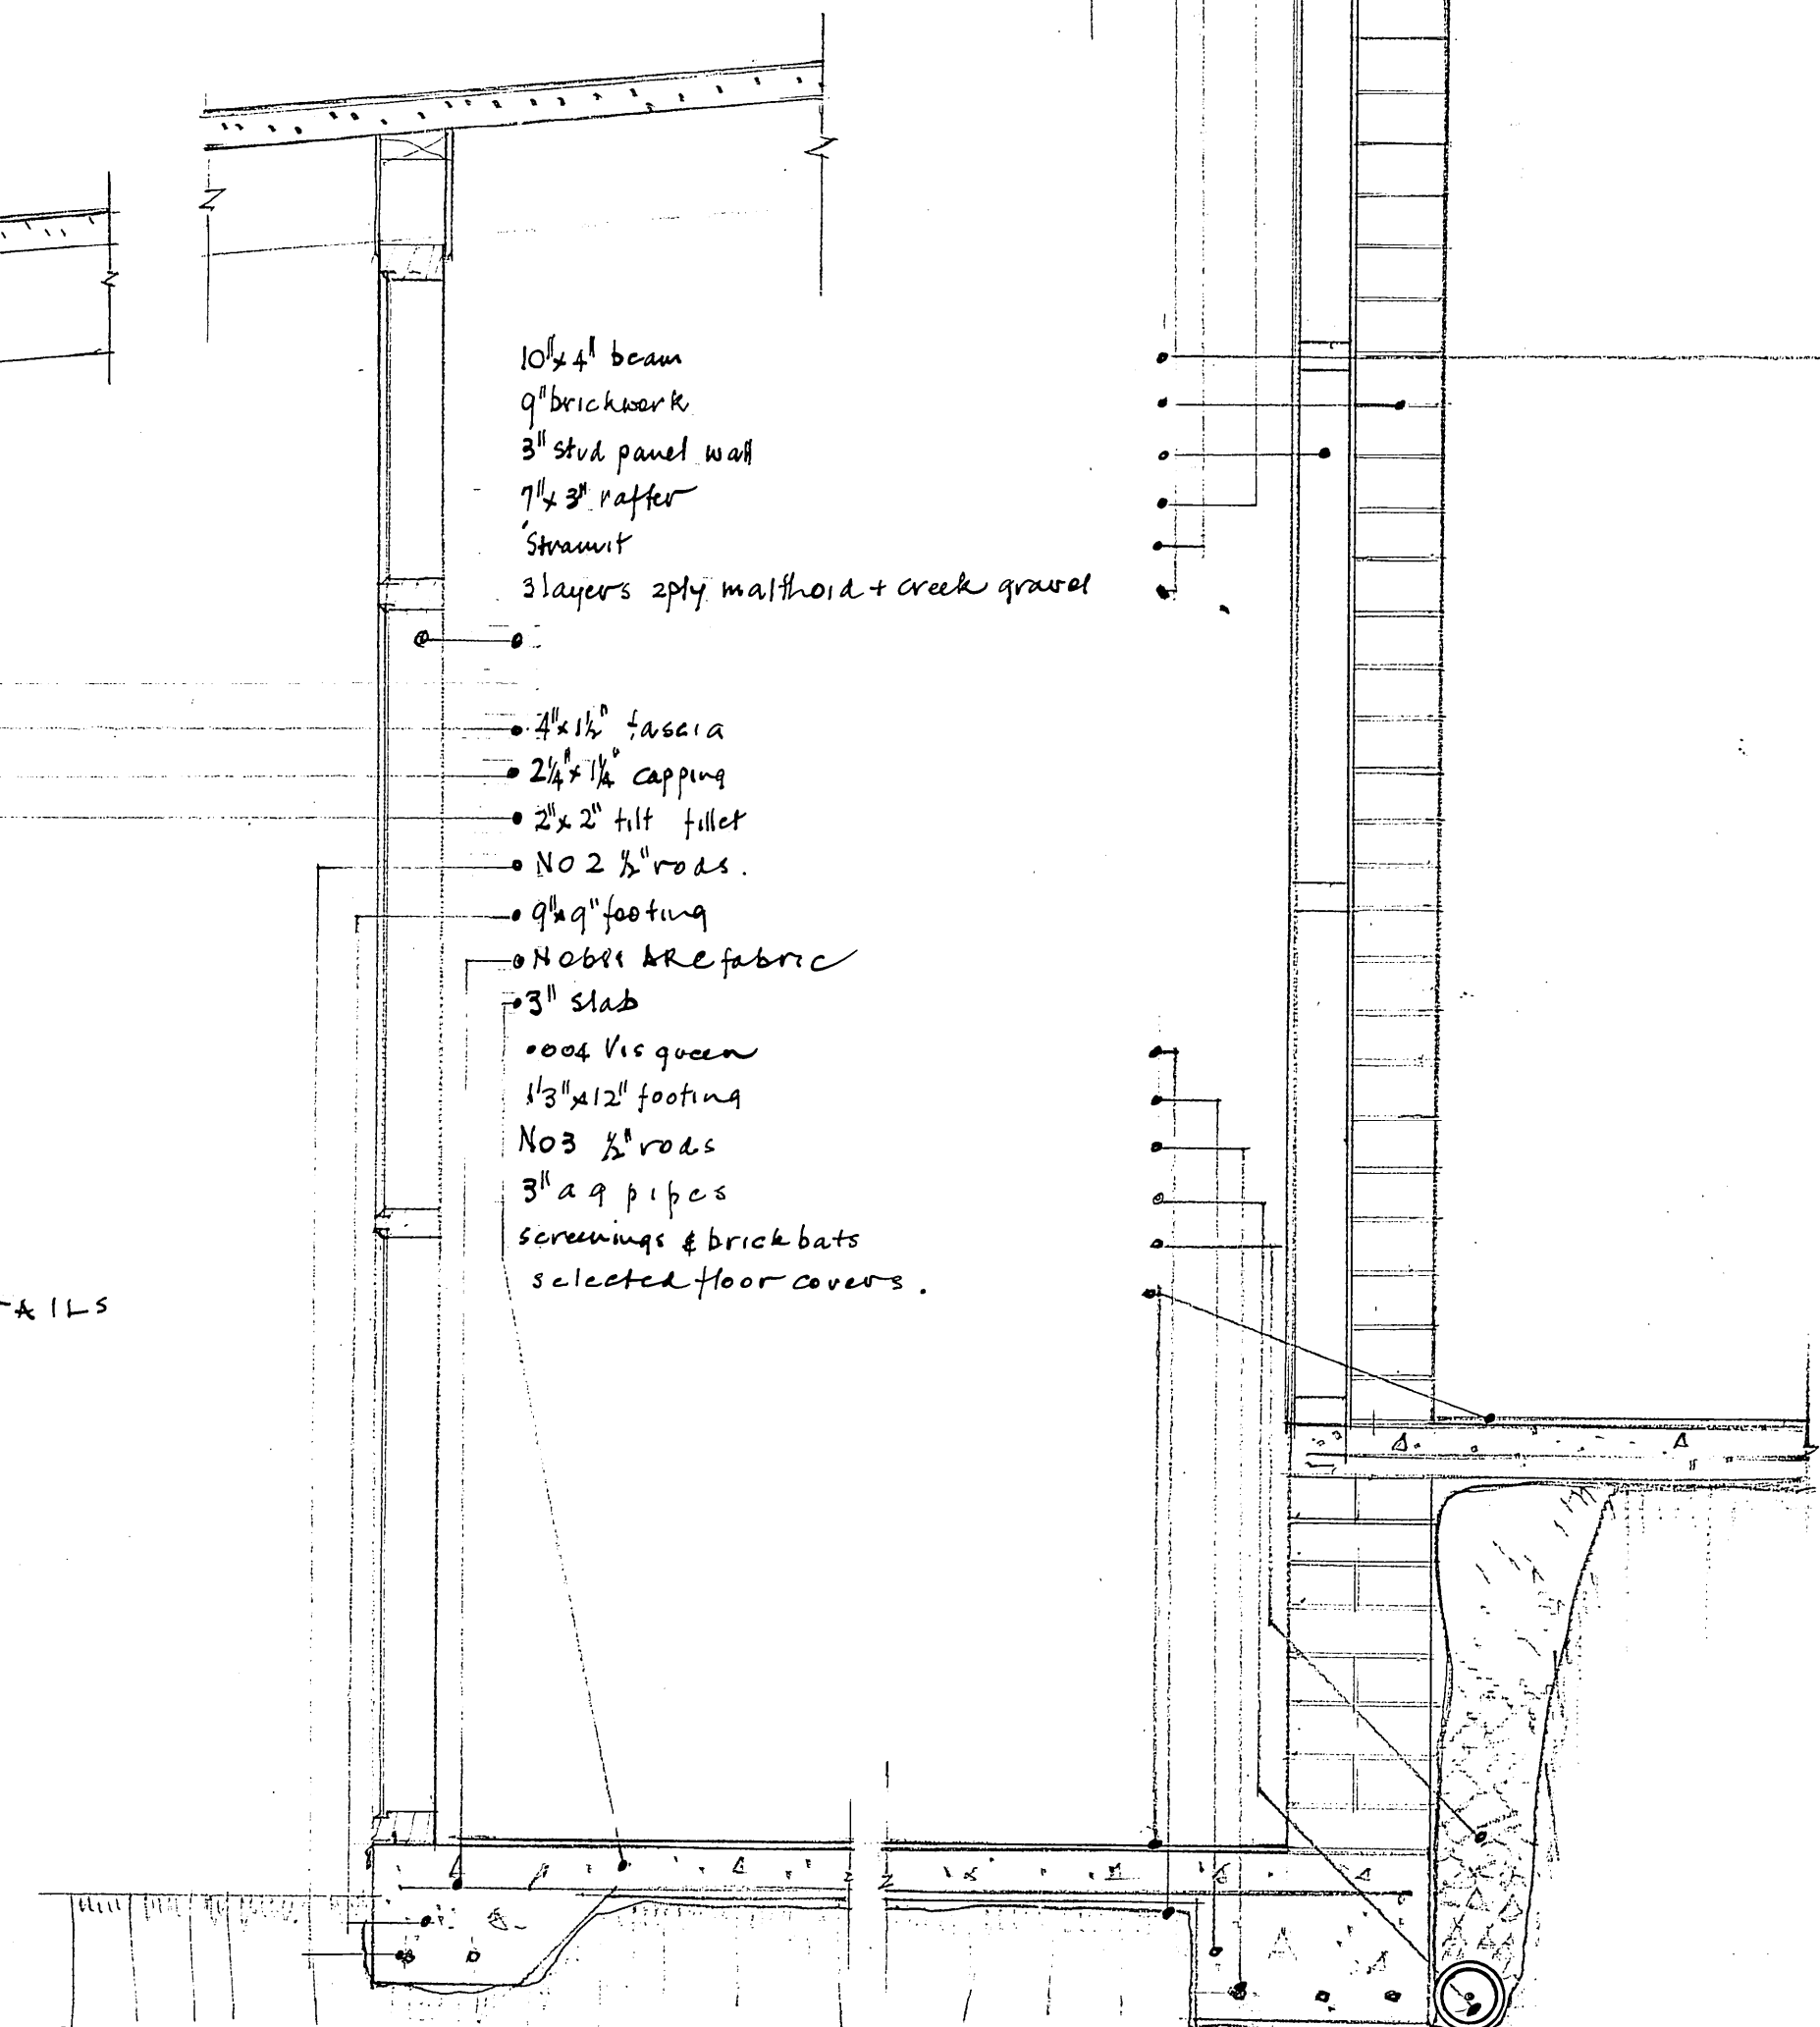 10"x 4" beam
9" brickwork
3" stud panel wall
7"x 3" rafter
Stramit
3 layers 2ply malthoid + creek gravel
4"x 1½" fascia
2¼"x 1¼" capping
2"x 2" tilt fillet
NO 2 ½" rods.
9"x 9" footing
ARC fabric
3" slab
.004 Visqueen
1'3"x12" footing
NO3 ½" rods
3" ag pipes
screenings & brickbats
selected floor covers.
AILS